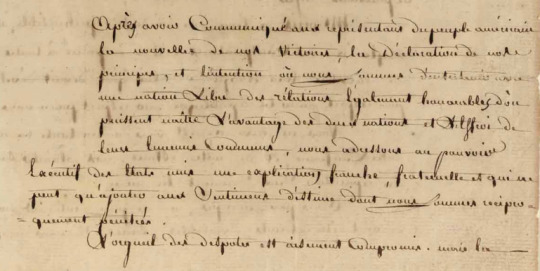 Après avoir Communiqué aux représentans du peuple américain
la nouvelle de nos Victoires, la Déclaration de nos
principes, et l'intention où nous sommes d'entretenir avec
une nation Libre des rélations Egalement honorables, d'où
puissent naître L'avantage des deux nations et L'Effroi de
leurs Ennemis Communs, nous adressons au pouvoir
Exécutif des Etats unis une explication, franche, fraternelle et qui ne
peut qu'ajouter aux Sentimens d'Estime dont nous sommes récipro-
=quement pénétrés.
L'orgueil des despotes est aisement Compromis. mais la